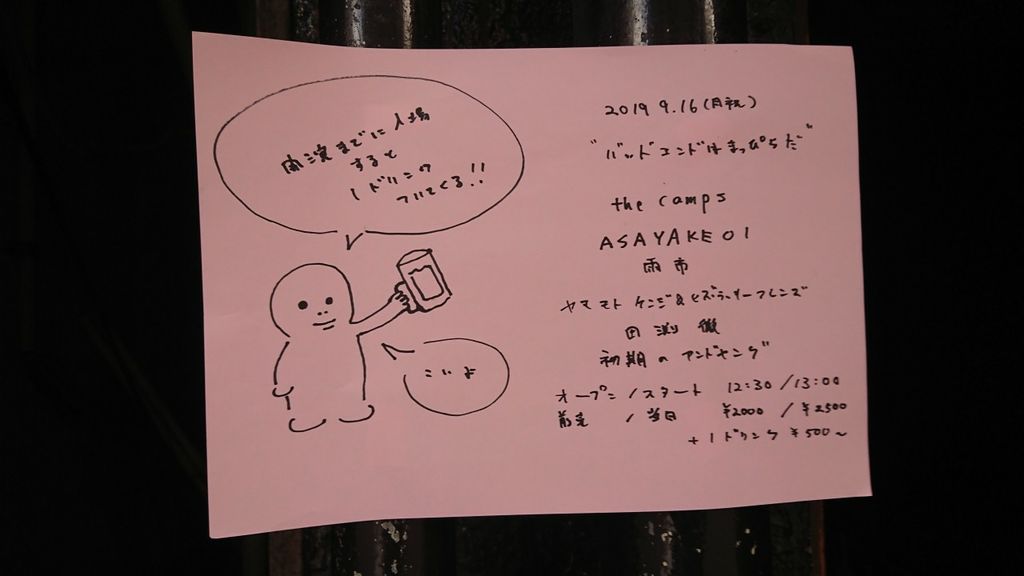 開演までに入場
すると
1ドリンク
ついてくる!!
こいよ
2019 9.16(月祝)
"バッドエンドはまっぴらだ"
the camps
ASAYAKE 01
雨市
ヤマモトケンジ&ヒズランサーフレンズ
田渕徹
初期のアンドヤング
オープン/スタート 12:30/13:00
前売/当日 ¥2000/¥2500
+1ドリンク ¥500~